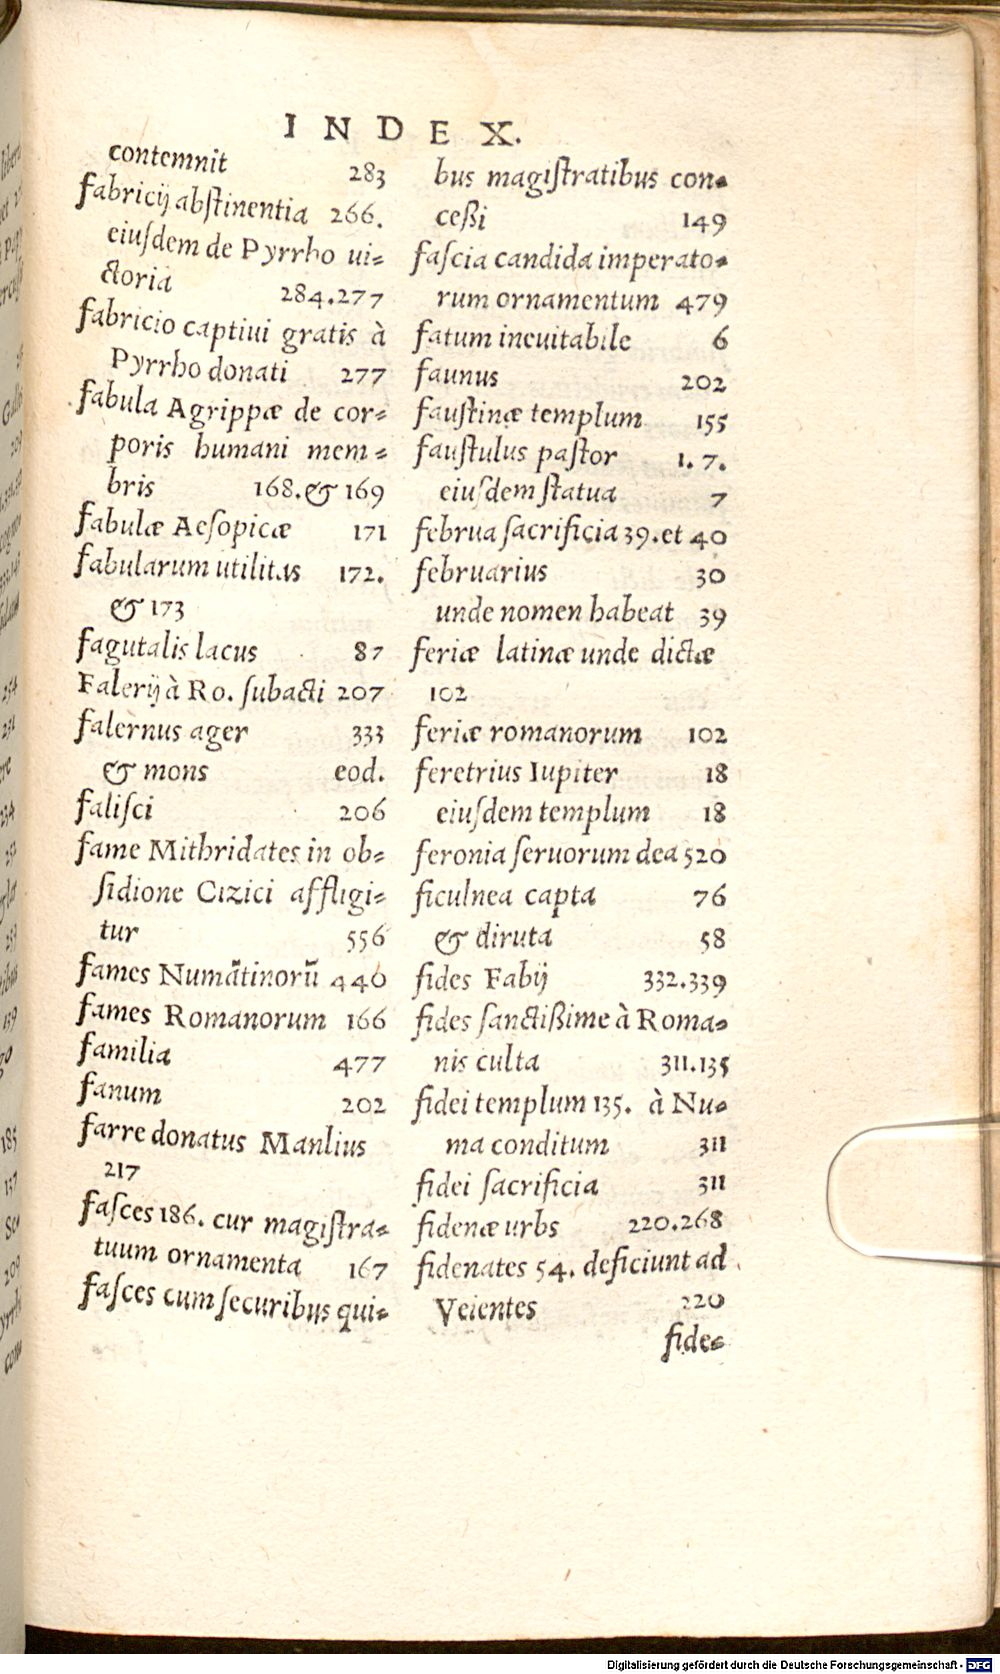 INDEX.
contemnit 283
fabricij abſtinentia 266.
eiuſdem de Pyrrho ui=
ctoria 284.277
fabricio captiui gratis à
Pyrrho donati 277
fabula Agrippæ de cor=
poris humani mem=
bris 168.& 169
fabulæ Aeſopicæ 171
fabularum utilitas 172.
& 173
fagutalis lacus 87
Falerij à Ro. ſubacti 207
falernus ager 333
& mons eod.
faliſci 206
fame Mithridates in ob=
ſidione Cizici affligi=
tur 556
fames Numãtinorũ 440
fames Romanorum 166
familia 477
fanum 202
farre donatus Manlius
217
faſces 186. cur magiſtra=
tuum ornamenta 167
faſces cum ſecuribus qui=
bus magiſtratibus con=
ceßi 149
faſcia candida imperato=
rum ornamentum 479
fatum ineuitabile 6
faunus 202
fauſtinæ templum 155
fauſtulus paſtor 1. 7.
eiuſdem ſtatua 7
februa ſacrificia 39.et 40
februarius 30
unde nomen habeat 39
feriæ latinæ unde dictæ
102
feriæ romanorum 102
feretrius Iupiter 18
eiuſdem templum 18
feronia ſeruorum dea 520
ficulnea capta 76
& diruta 58
fides Fabij 332.339
fides ſanctißime à Roma=
nis culta 311.135
fidei templum 135. à Nu=
ma conditum 311
fidei ſacrificia 311
fidenæ urbs 220.268
fidenates 54. deficiunt ad
Veientes 220
fide=
Digitalisierung gefördert durch die Deutsche Forschungsgemeinschaft - DFG